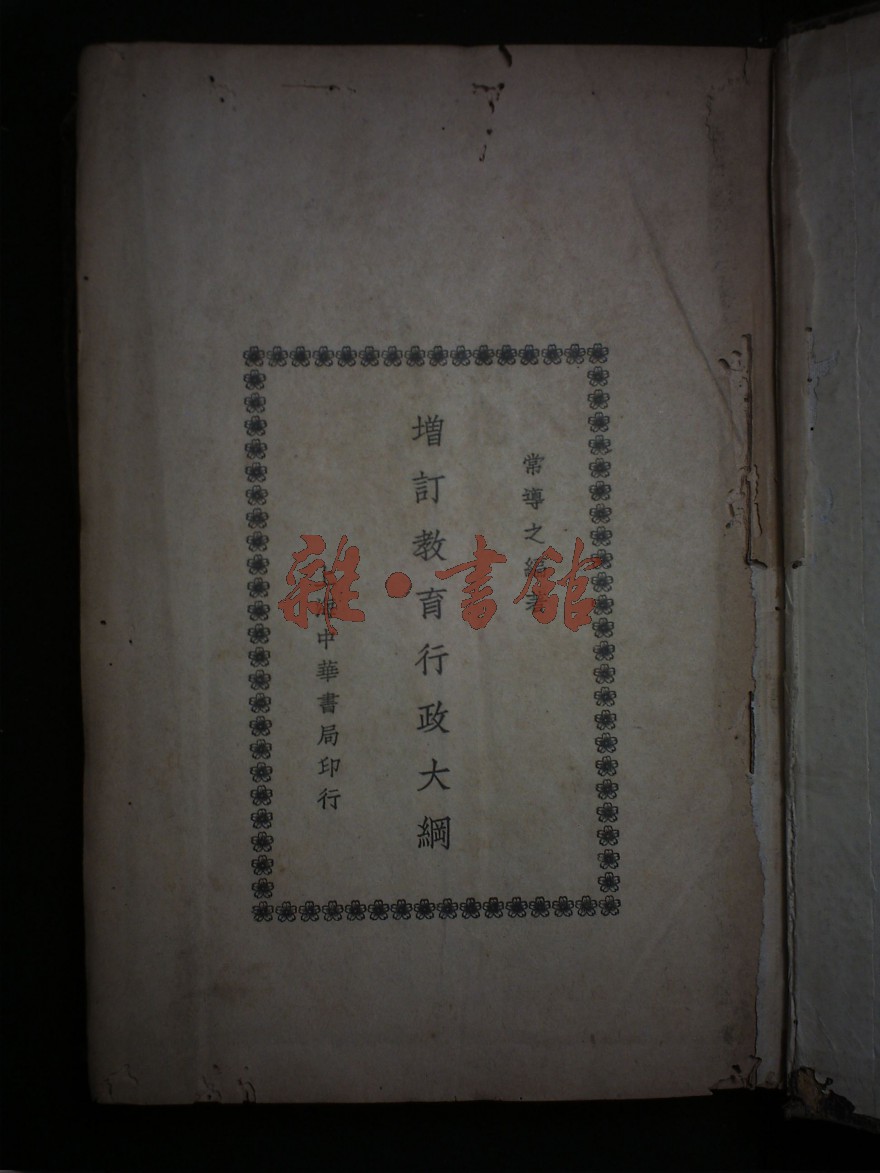 常導之編著
增訂教育行政大綱
上海中華書局印行
雜·書館